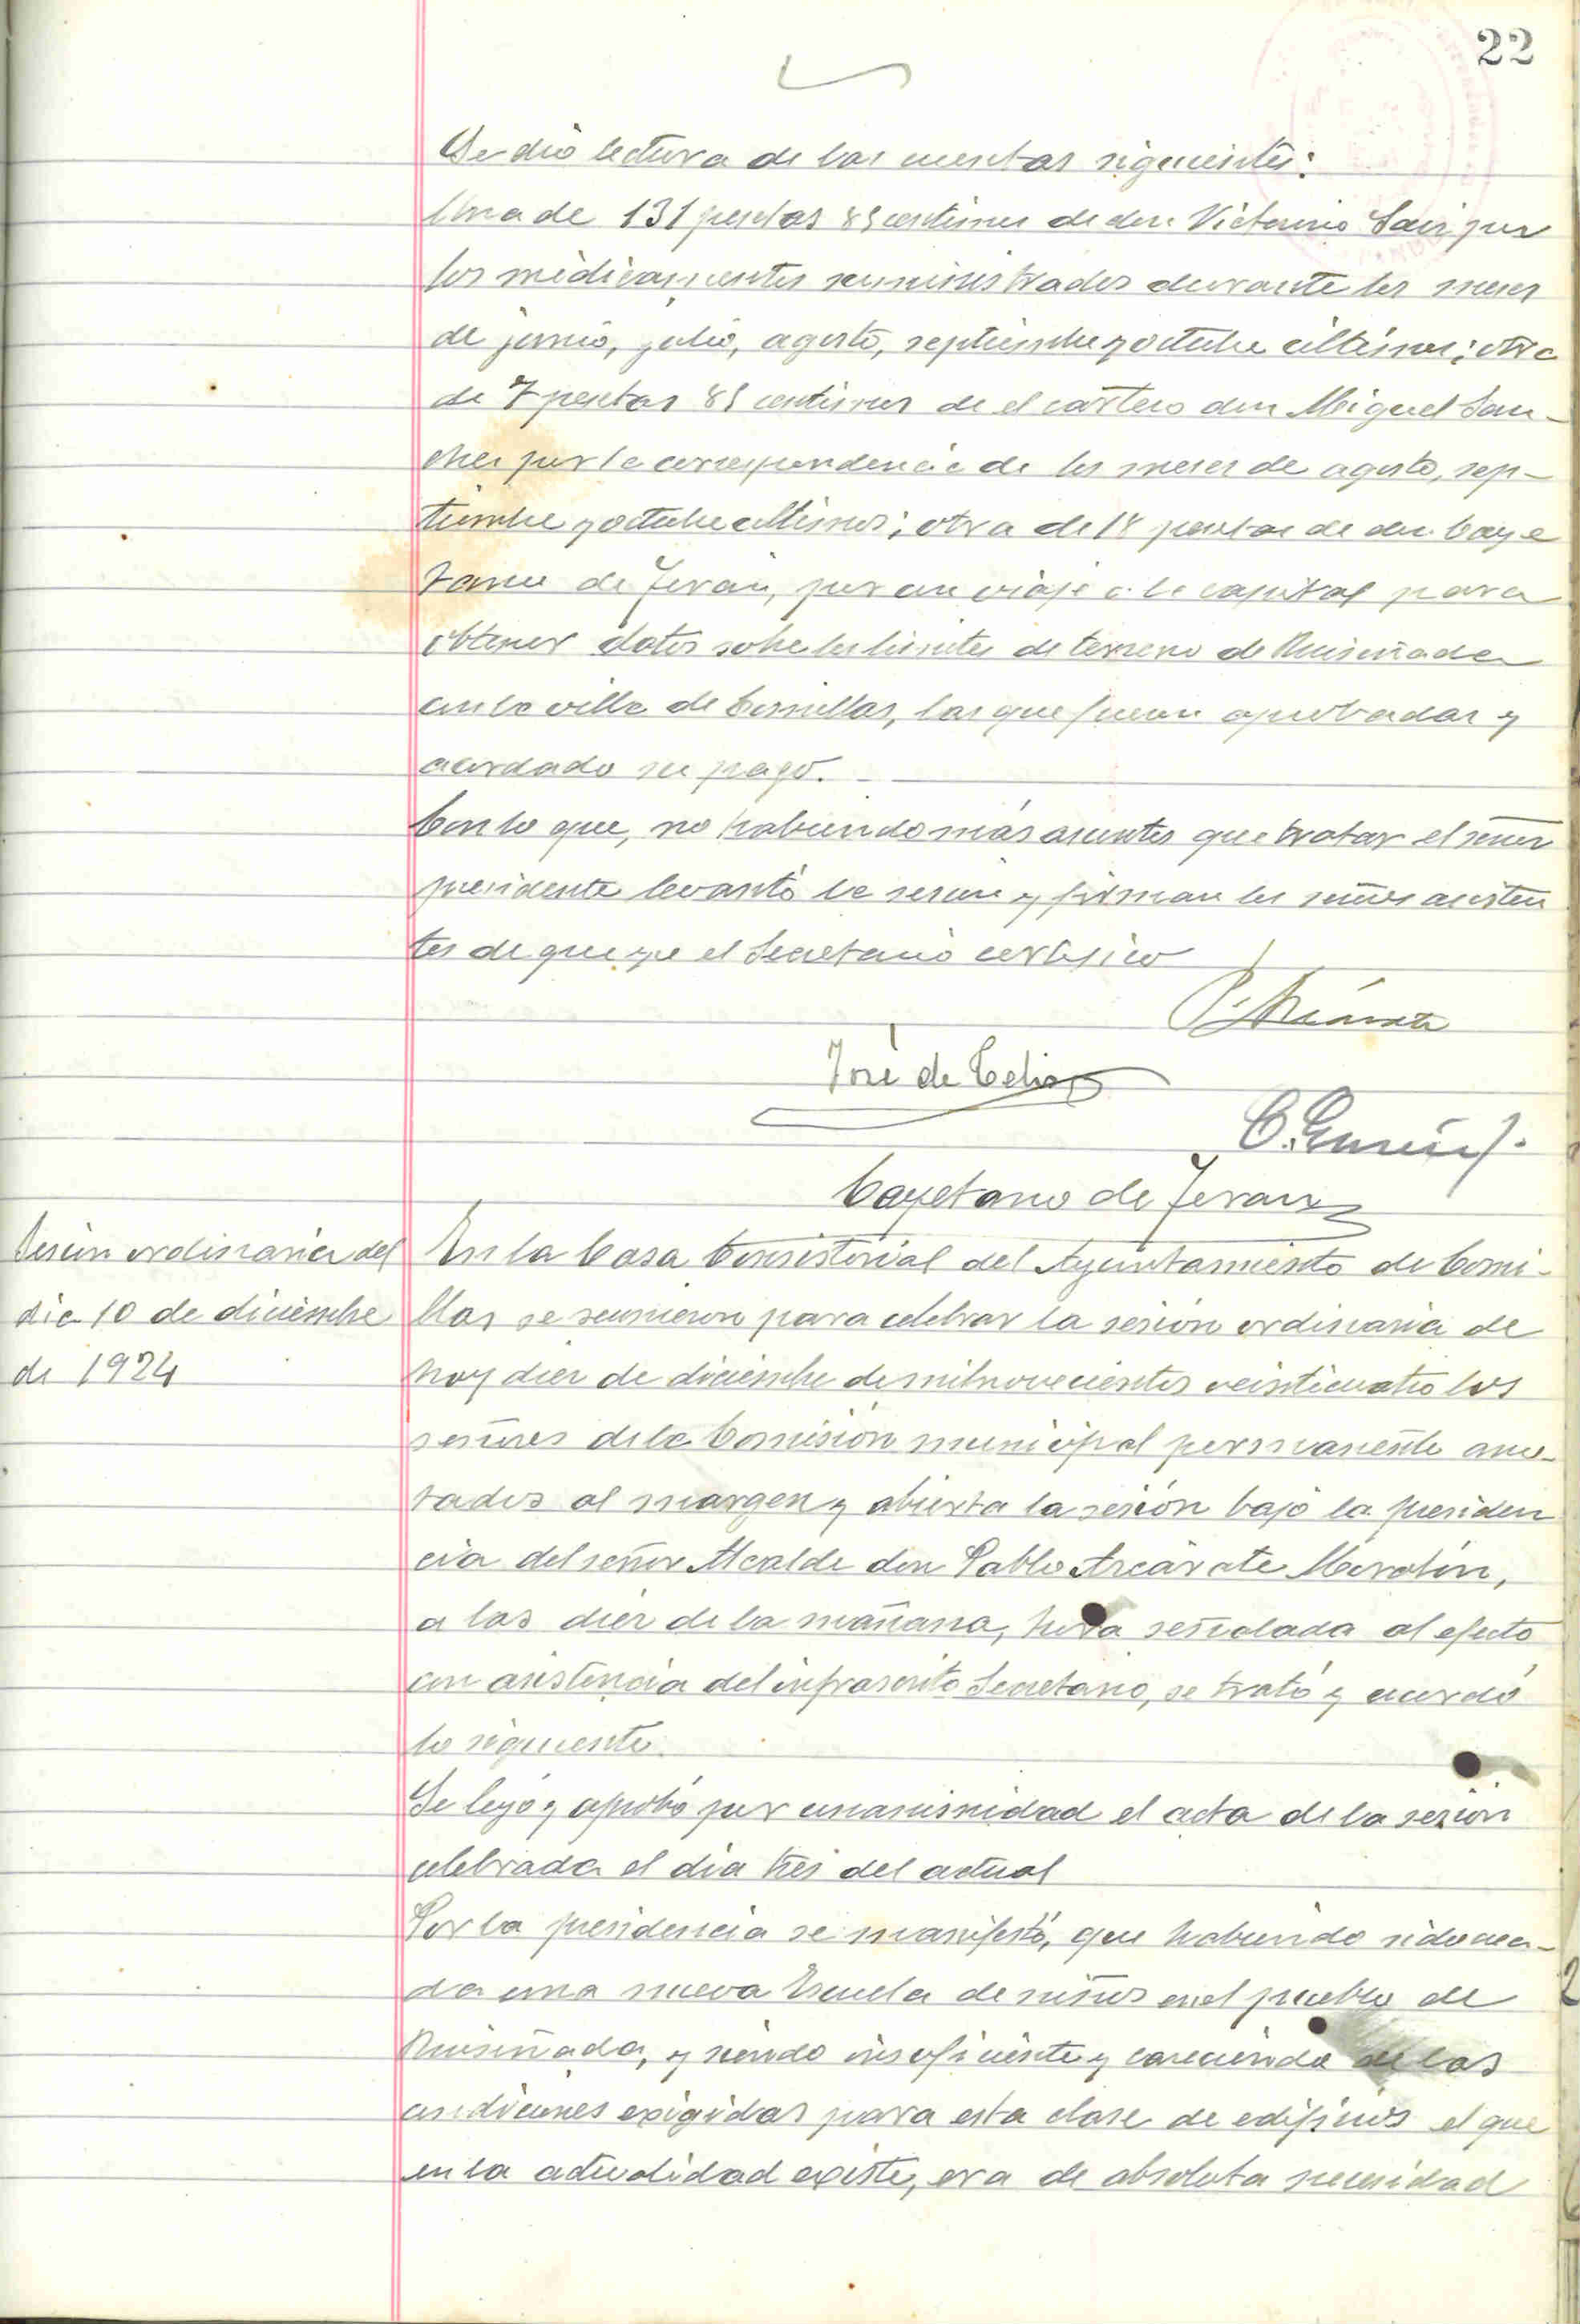 22
Se dió lectura de las cuentas siguientes:
Una de 131 pesetas 85 centimos de don Victorino Sainz por
los medicamentos suministrados durante los meses
de junio, julio, agosto, septiembre y octubre últimos; otra
de 7 pesetas 85 centimos de el cartero don Miguel San-
chez por la correspondencia de los meses de agosto, sep-
tiembre y octubre ultimos; otra de 18 pesetas de don Caye
tano de Teran, por un viaje a la capital para
obtener datos sobre los limites de terreno de Ruiseñada
con la villa de Comillas, las que fueron aprobadas y
acordado su pago.
Con lo que, no habiendo más asuntos que tratar el señor
presidente levantó la sesion y firman los señores asisten
tes de que yo el Secretario certifico
P. Azcárate
José de Celis
Cayetano de Teran
Sesion ordinaria del
dia 10 de diciembre
de 1924
En la Casa Consistorial del Ayuntamiento de Comi-
llas se reunieron para celebrar la sesión ordinaria de
hoy diez de diciembre de mil novecientos veinticuatro los
señores de la Comisión municipal permanente ano-
tados al margen y abierta la sesión bajo la presiden
cia del señor Alcalde don Pablo Azcárate Marotin,
a las diez de la mañana, hora señalada al efecto
con asistencia del infrascrito Secretario, se trató y acordó
lo siguiente.
Se leyó y aprobó por unanimidad el acta de la sesión
celebrada el dia tres del actual
Por la presidencia se manifestó, que habiendo sido crea-
da una nueva Escuela de niños en el pueblo de
Ruiseñada, y siendo insuficiente y careciendo de las
condiciones exigidas para esta clase de edificios el que
en la actualidad existe, era de absoluta necesidad